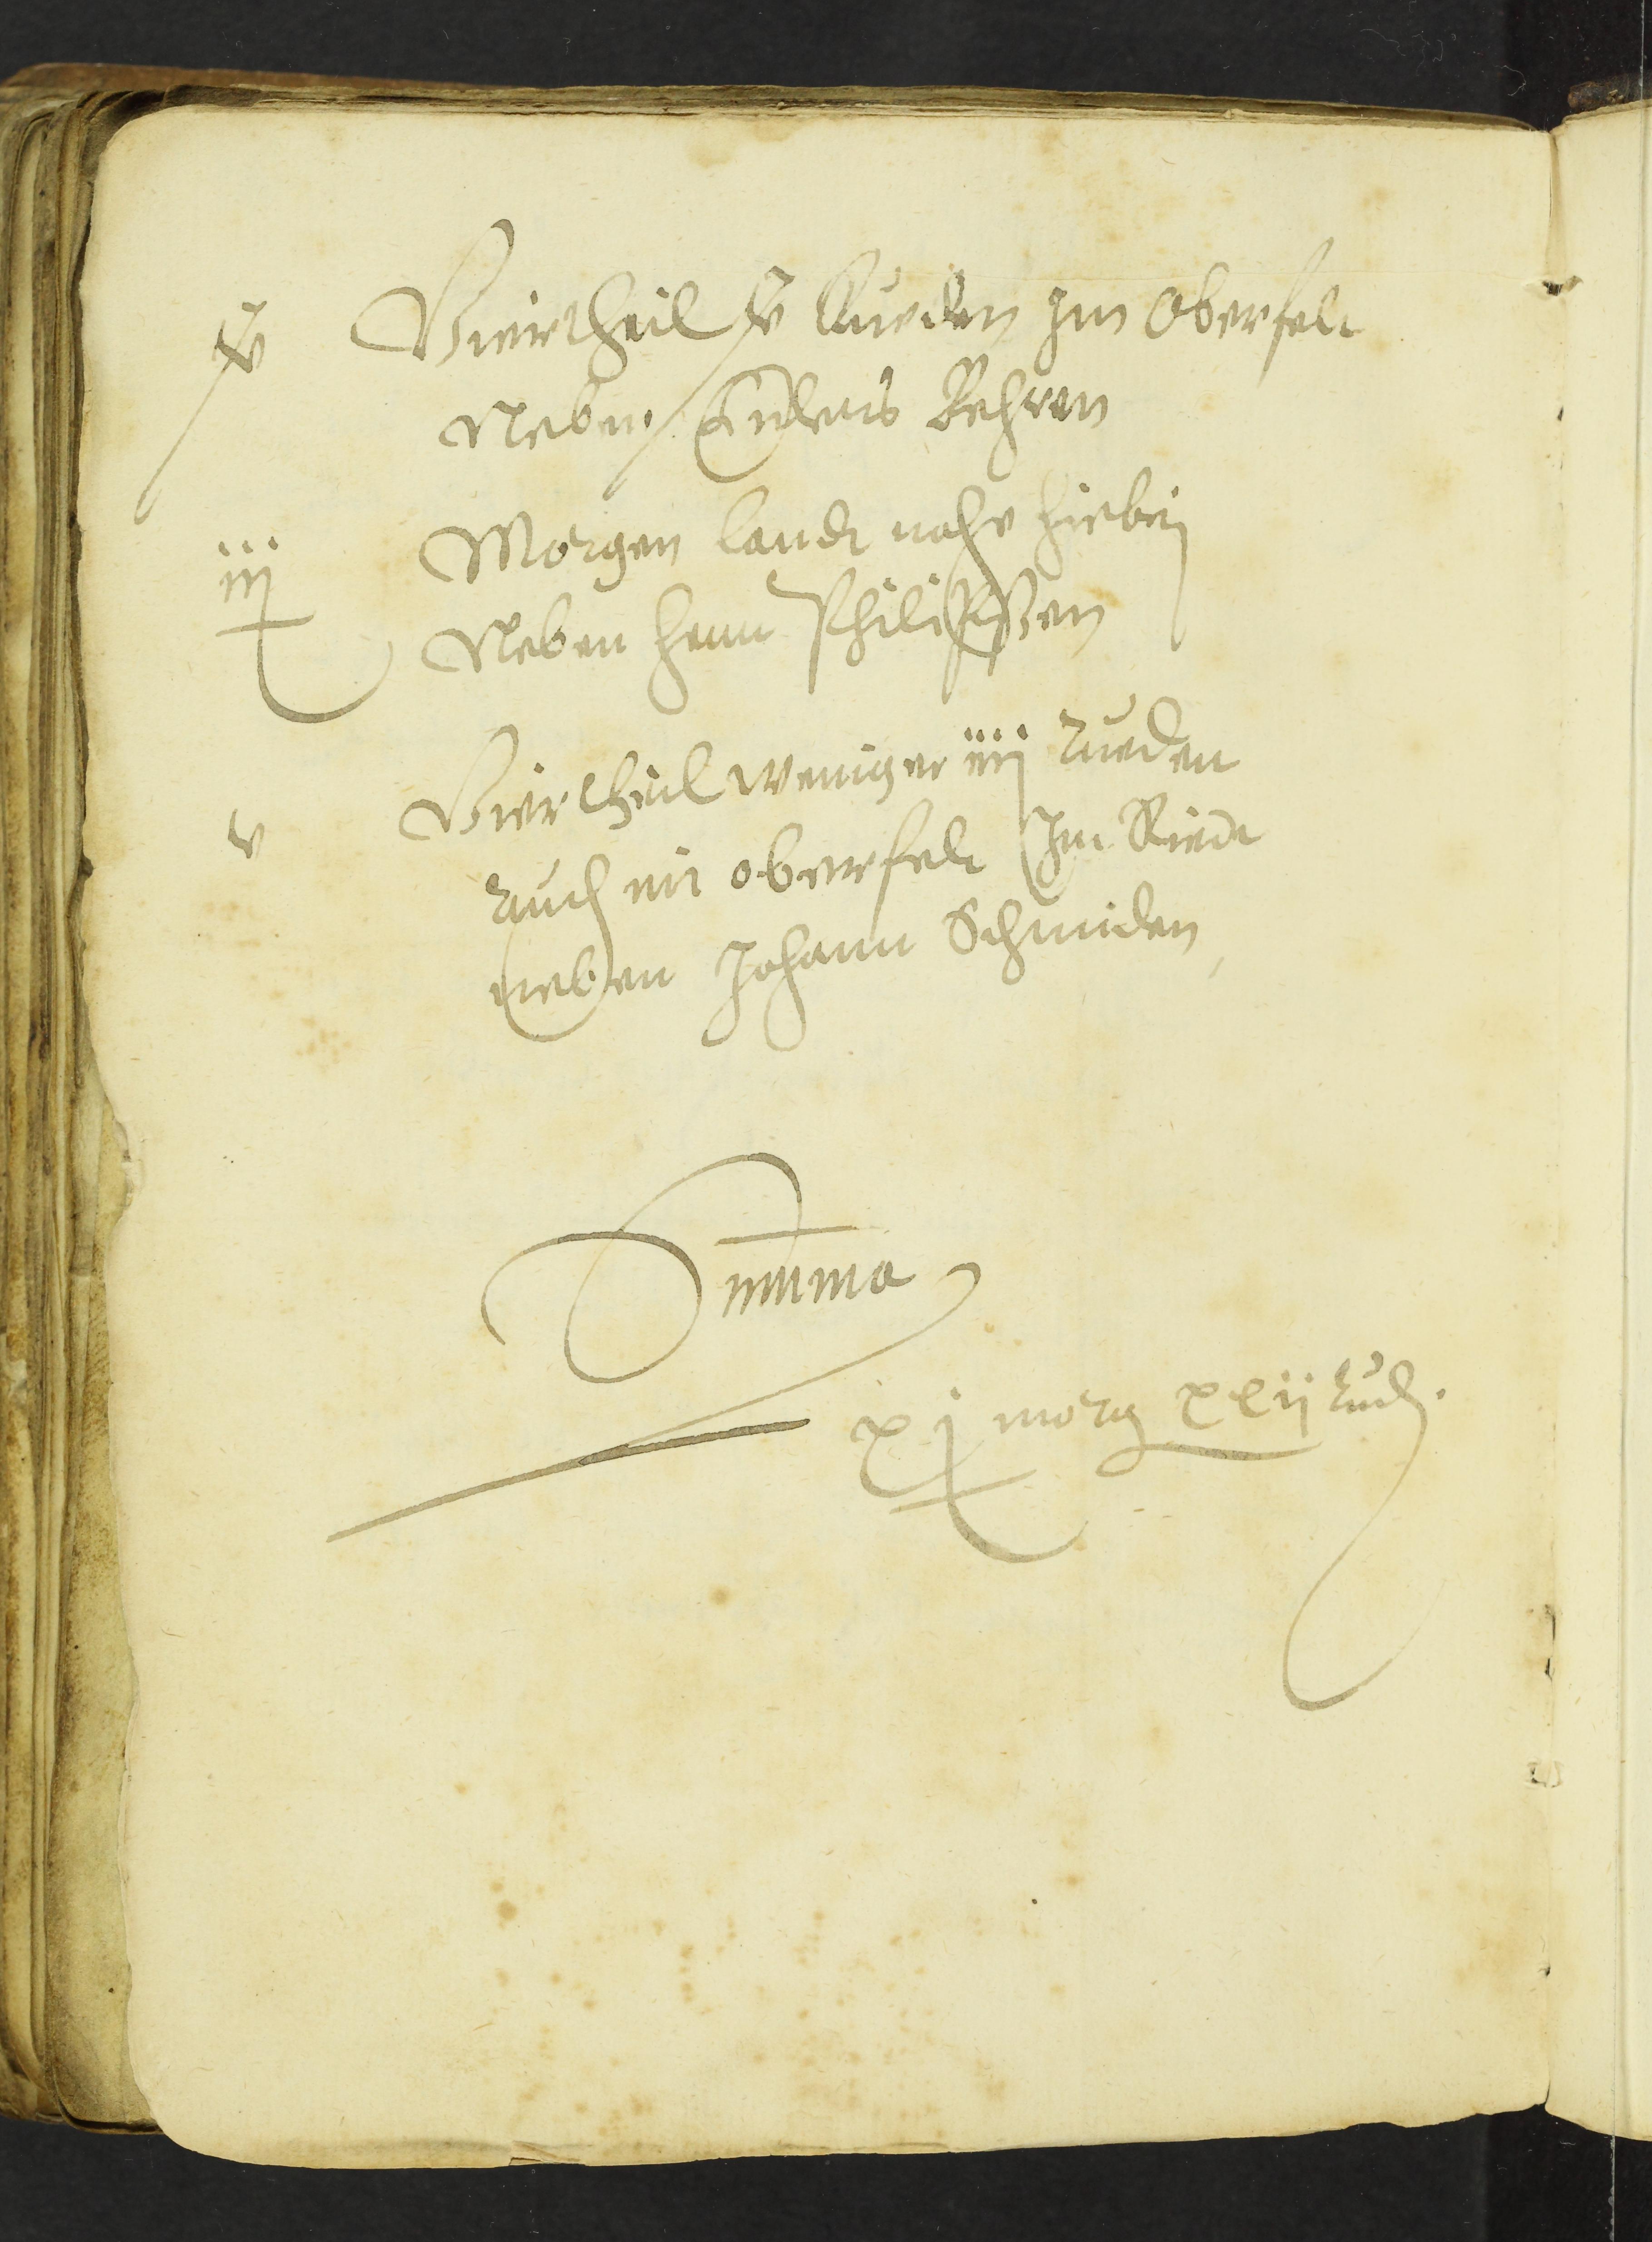 v Viertheil v Rueden Im oberfelt
Neben Behren
iii Morgen landt nahe hiebej
Neben henn Philipßen
v Viertheil weniger iiij rueden
auch im oberfelt Im Riedt
neben Johann Schmiden,
Summa
xj morg xxij rud.